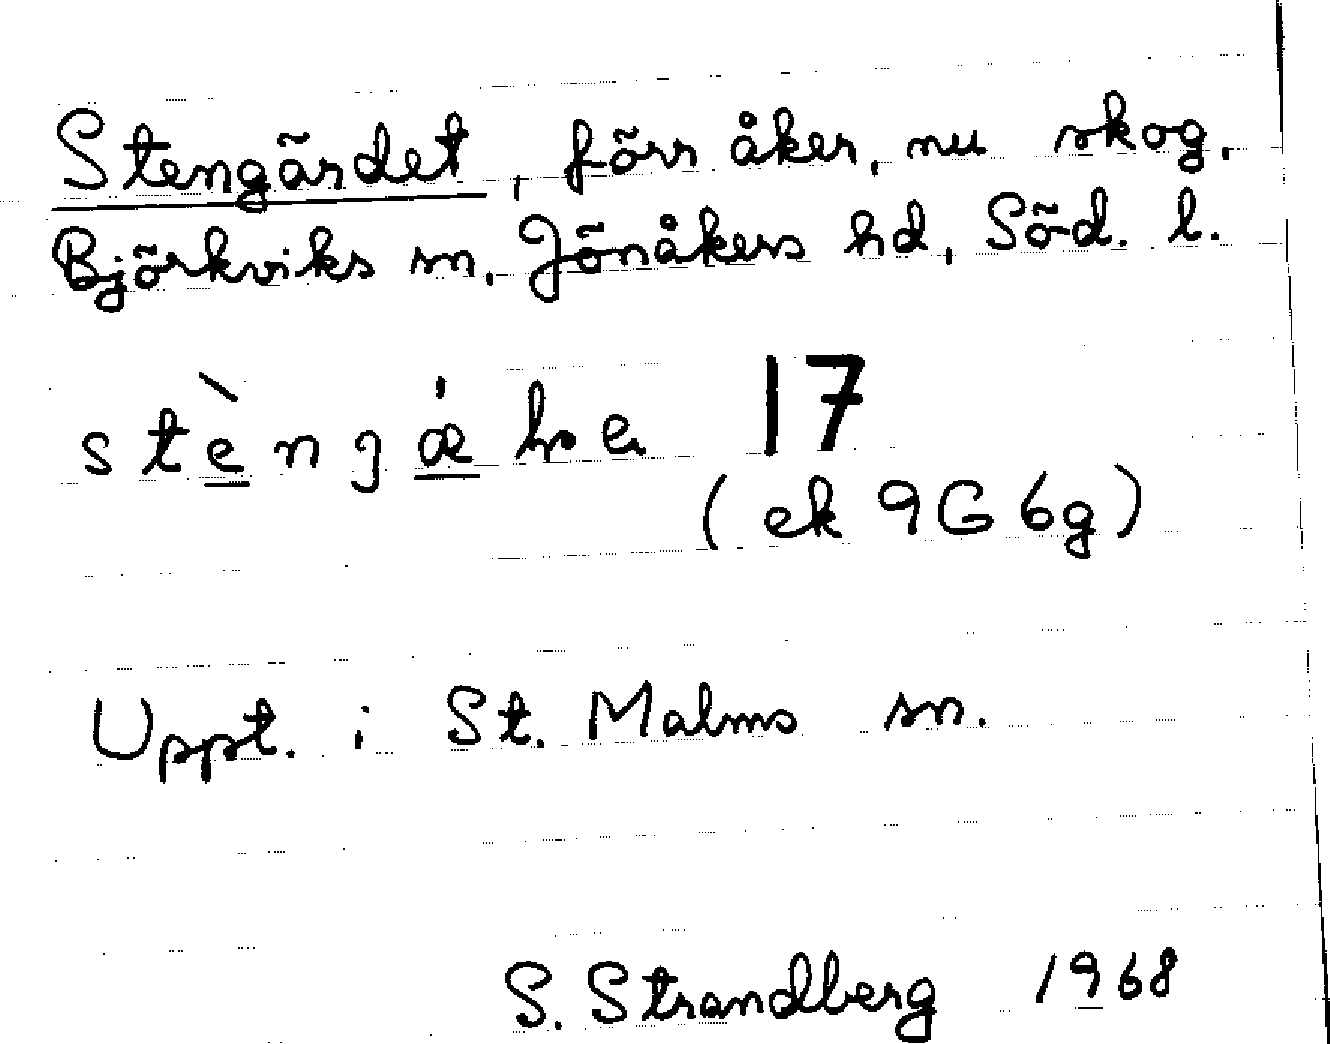 Stengärdet, förr åker, nu skog.
Björkviks sn, Jönåkers hd, Söd. l.
17
(ek 9G 6g)
Uppt. i St. Malms sn.
S. Strandberg 1968